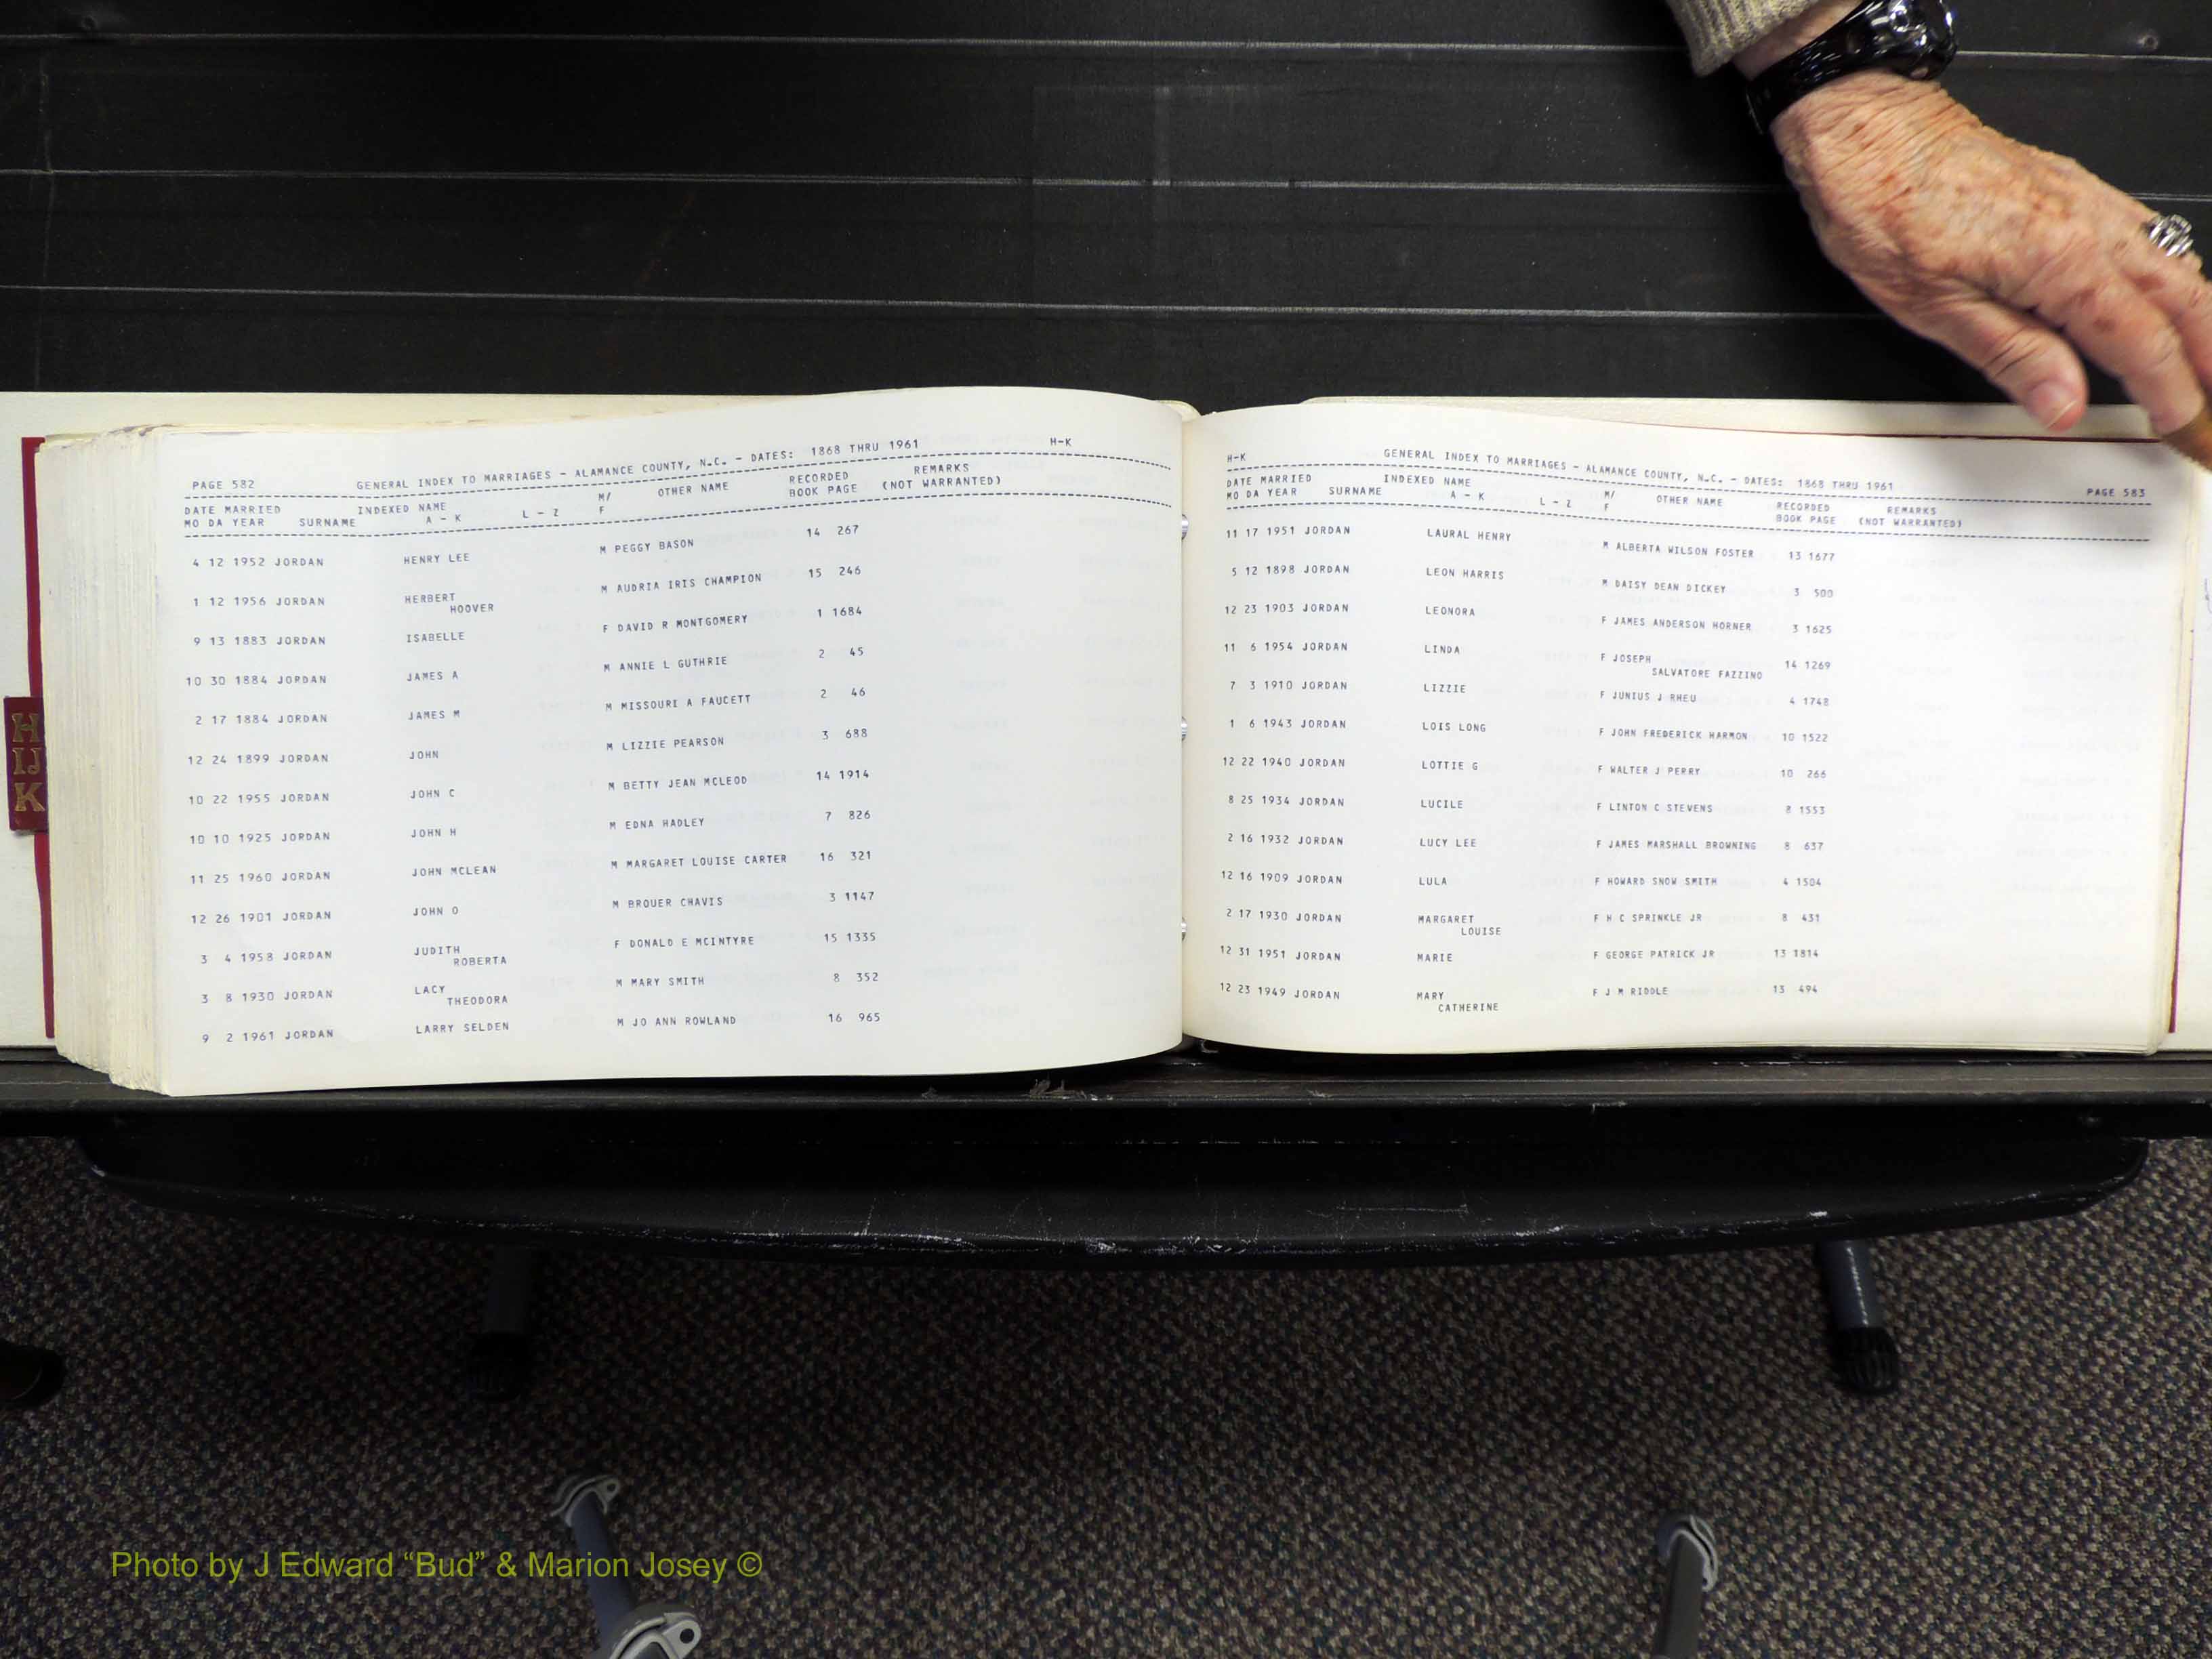 PAGE 582 GENERAL INDEX TO MARRIAGES - ALAMANCE COUNTY, N.C. - DATES: 1868 THRU 1961 H-K
DATE MARRIED INDEXED NAME M/ OTHER NAME RECORDED REMARKS
MO DA YEAR SURNAME A - K L - Z F BOOK PAGE (NOT WARRANTED)
4 12 1952 JORDAN HENRY LEE M PEGGY BASON 14 267
1 12 1956 JORDAN HERBERT M AUDRIA IRIS CHAMPION 15 246
HOOVER
9 13 1883 JORDAN ISABELLE F DAVID R MONTGOMERY 1 1684
10 30 1884 JORDAN JAMES A M ANNIE L GUTHRIE 2 45
2 17 1884 JORDAN JAMES M M MISSOURI A FAUCETT 2 46
12 24 1899 JORDAN JOHN M LIZZIE PEARSON 3 688
10 22 1955 JORDAN JOHN C M BETTY JEAN MCLEOD 14 1914
10 10 1925 JORDAN JOHN H M EDNA HADLEY 7 826
11 25 1960 JORDAN JOHN MCLEAN M MARGARET LOUISE CARTER 16 321
12 26 1901 JORDAN JOHN O M BROUER CHAVIS 3 1147
3 4 1958 JORDAN JUDITH F DONALD E MCINTYRE 15 1335
ROBERTA
3 8 1930 JORDAN LACY M MARY SMITH 8 352
THEODORA
9 2 1961 JORDAN LARRY SELDEN M JO ANN ROWLAND 16 965
H-K GENERAL INDEX TO MARRIAGES - ALAMANCE COUNTY, N.C. - DATES: 1868 THRU 1961 PAGE 583
DATE MARRIED INDEXED NAME M/ OTHER NAME RECORDED REMARKS
MO DA YEAR SURNAME A - K L - Z F BOOK PAGE (NOT WARRANTED)
11 17 1951 JORDAN LAURAL HENRY M ALBERTA WILSON FOSTER 13 1677
5 12 1898 JORDAN LEON HARRIS M DAISY DEAN DICKEY 3 500
12 23 1903 JORDAN LEONORA F JAMES ANDERSON HORNER 3 1625
11 6 1954 JORDAN LINDA F JOSEPH 14 1269
SALVATORE FAZZINO
7 3 1910 JORDAN LIZZIE F JUNIUS J RHEU 4 1748
1 6 1943 JORDAN LOIS LONG F JOHN FREDERICK HARMON 10 1522
12 22 1940 JORDAN LOTTIE G F WALTER J PERRY 10 266
8 25 1934 JORDAN LUCILE F LINTON C STEVENS 8 1553
2 16 1932 JORDAN LUCY LEE F JAMES MARSHALL BROWNING 8 637
12 16 1909 JORDAN LULA F HOWARD SNOW SMITH 4 1504
2 17 1930 JORDAN MARGARET F H C SPRINKLE JR 8 431
LOUISE
12 31 1951 JORDAN MARIE F GEORGE PATRICK JR 13 1814
12 23 1949 JORDAN MARY F J M RIDDLE 13 494
CATHERINE
H
IJ
K
Photo by J Edward “Bud” & Marion Josey ©